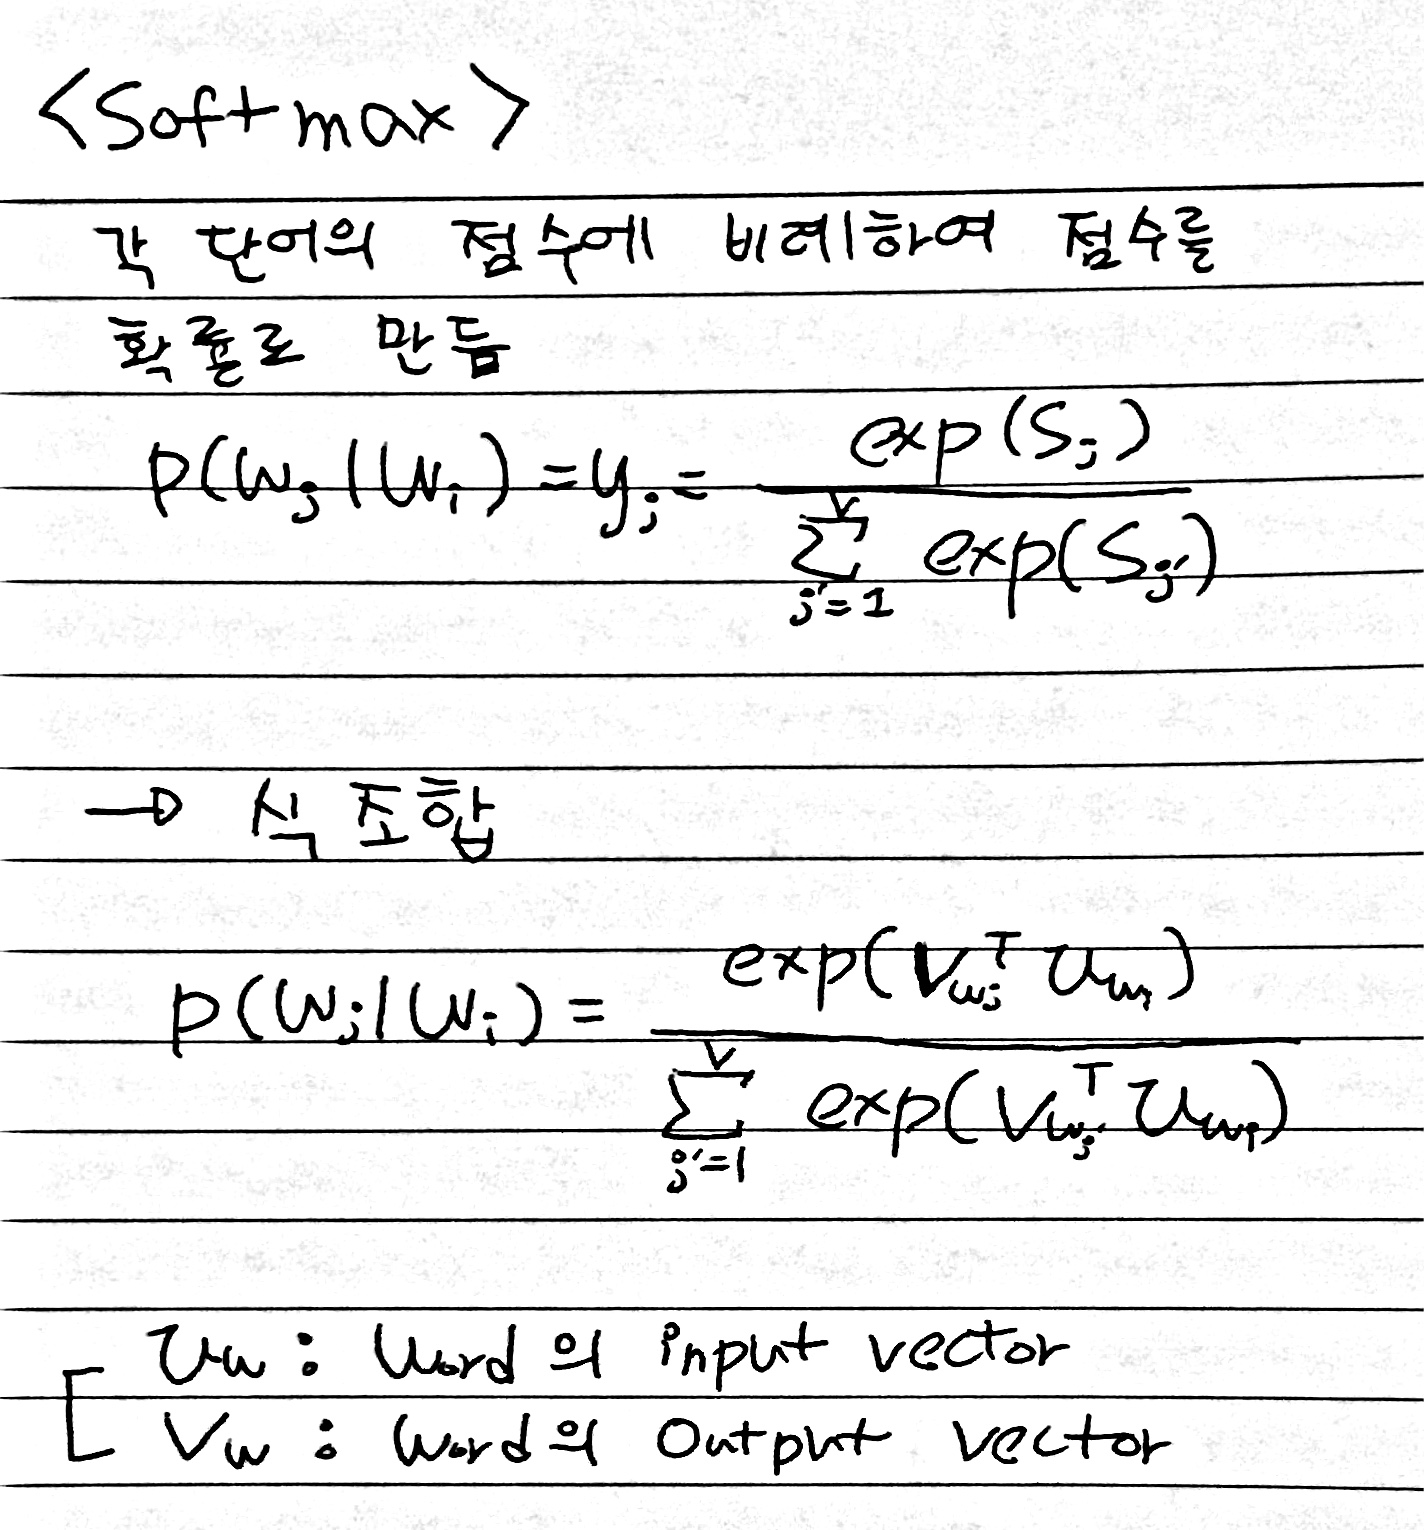 <Softmax>
각 단어의 점수에 비례하여 점수를
확률로 만듬
p(w_j|w_i) = y_j = \frac{exp(S_j)}{\sum_{j'=1}^{V} exp(S_{j'})}
→ 식 조합
p(w_j|w_i) = \frac{exp(V_{w_j}^T U_{w_i})}{\sum_{j'=1}^{V} exp(V_{w_{j'}}^T U_{w_i})}
U_w : Word의 input vector
V_w : Word의 Output vector